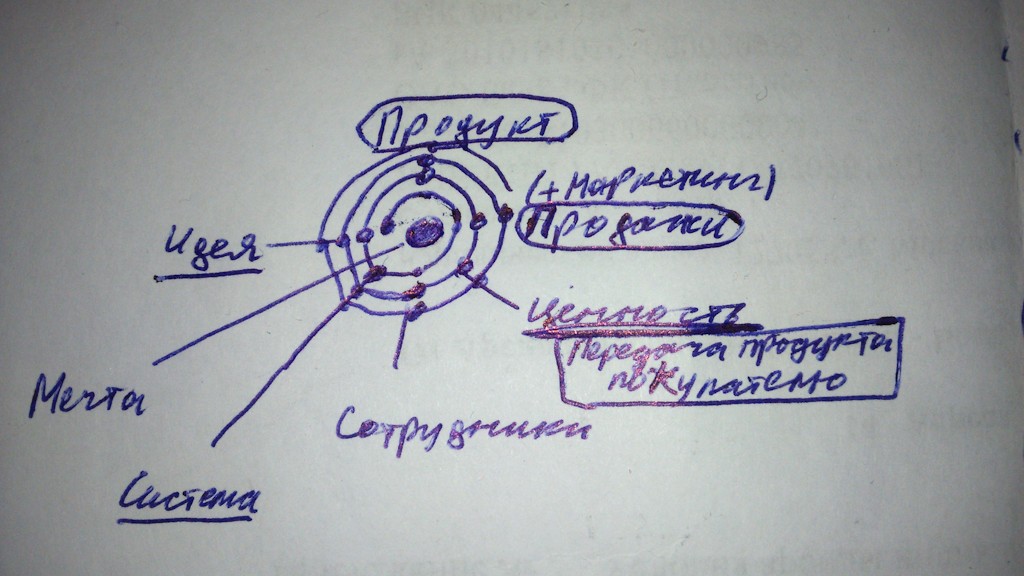 Продукт
(+маркетинг)
Продажи
Идея
Ценность
Передача продукта
покупателю
Мечта
Сотрудники
Система